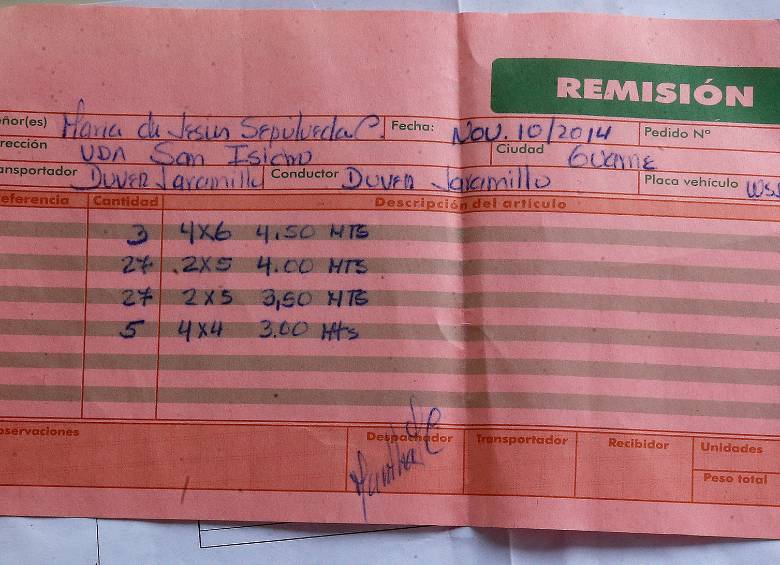 REMISIÓN
ñor(es) Maria de Jesus Sepulveda C. Fecha: Nov. 10/2014 Pedido Nº
rección VDA San Isidro Ciudad Guarne
ansportador Duver Jaramillo Conductor Duver Jaramillo Placa vehículo
eferencia Cantidad Descripción del artículo
3 4x6 4.50 MTS
27 2x5 4.00 MTS
27 2x5 3,50 MTS
5 4x4 3.00 Mts
bservaciones Despachador Transportador Recibidor Unidades
Peso total